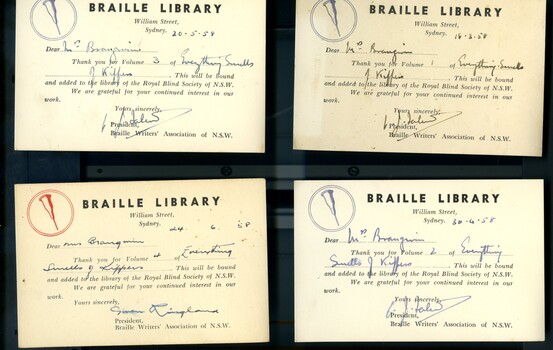 BRAILLE LIBRARY
William Street,
Sydney. 20-5-58
Dear Mrs Brangwin
Thank you for Volume 3 of Everything Smells
of Kippers. This will be bound
and added to the library of the Royal Blind Society of N.S.W.
We are grateful for your continued interest in our
work.
Yours sincerely,
President,
Braille Writers' Association of N.S.W.
BRAILLE LIBRARY
William Street,
Sydney. 18-3-58
Dear Mrs Brangwin
Thank you for Volume 1 of Everything Smells
of Kippers. This will be bound
and added to the library of the Royal Blind Society of N.S.W.
We are grateful for your continued interest in our
work.
Yours sincerely,
President,
Braille Writers' Association of N.S.W.
BRAILLE LIBRARY
William Street,
Sydney. 24. 6. 58
Dear Mrs Brangwin
Thank you for Volume 4 of Everything
Smells of Kippers. This will be bound
and added to the library of the Royal Blind Society of N.S.W.
We are grateful for your continued interest in our
work.
Yours sincerely,
President,
Braille Writers' Association of N.S.W.
BRAILLE LIBRARY
William Street,
Sydney. 30-4-58
Dear Mrs Brangwin
Thank you for Volume 2 of Everything
Smells of Kippers. This will be bound
and added to the library of the Royal Blind Society of N.S.W.
We are grateful for your continued interest in our
work.
Yours sincerely,
President,
Braille Writers' Association of N.S.W.